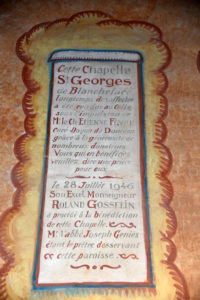 Cette Chapelle
St Georges
de Blanchefac
longtemps désaffectée
a été
sous l'impulsion de
M. le Ch. Etienne
Curé Doyen de
grâce à la générosité de
nombreux donateurs.
Vous qui en bénéficiez
veuillez dire une prière
pour eux.
le 28 Juillet 1946
Son Excl. Monseigneur
Roland Gosselin
a procédé à la bénédiction
de cette Chapelle.
M. l'abbé Joseph
étant le prêtre desservant
de cette paroisse